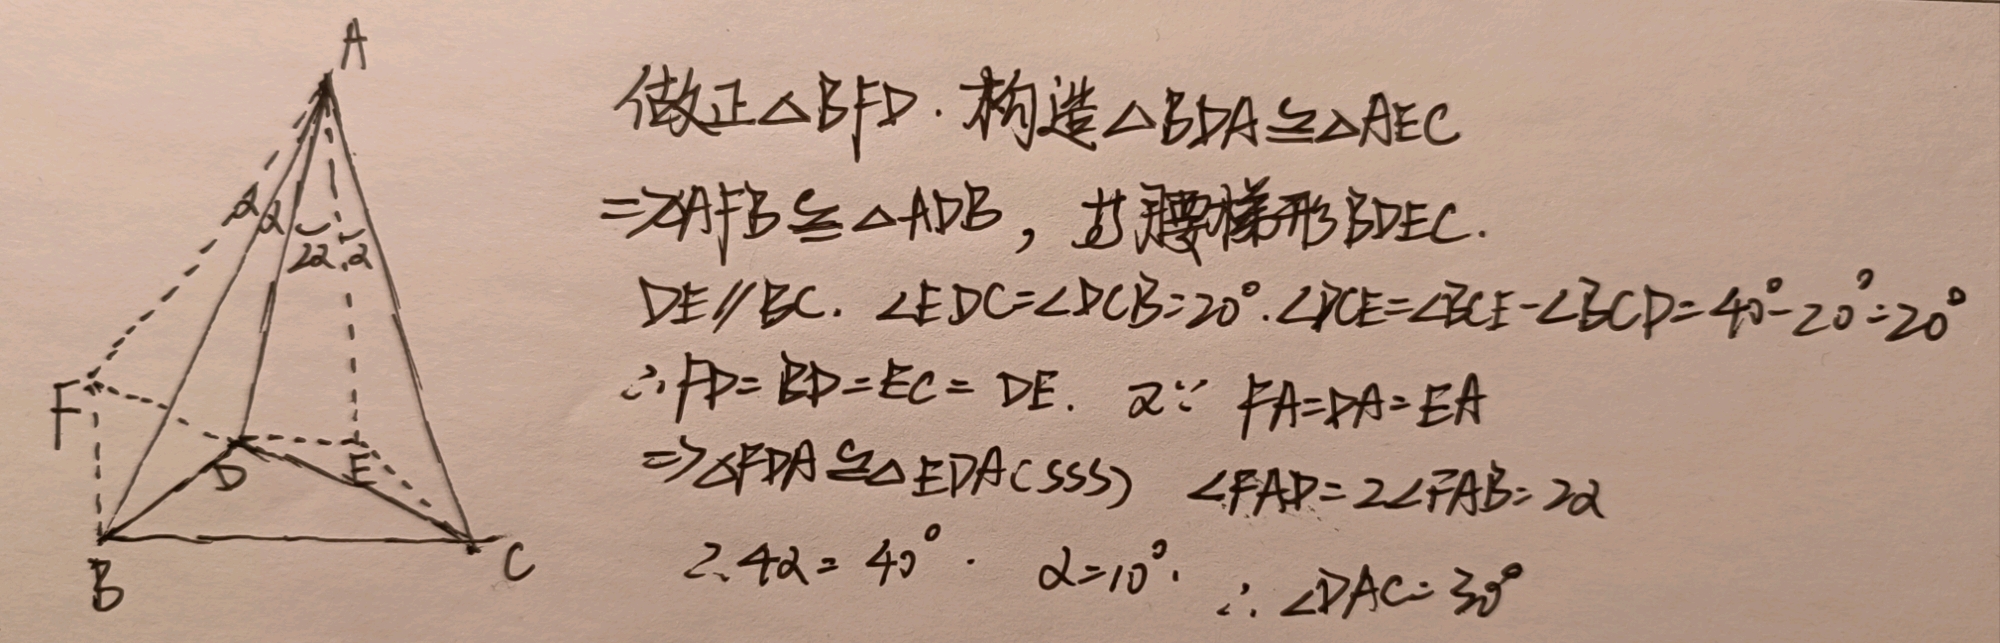 A
α
α
2α
α
F
D
E
B
C
做正△BFD.构造△BDA≌△AEC
⇒△AFB≌△ADB, 等腰梯形BDEC.
DE∥BC. ∠EDC=∠DCB=20°.∠DCE=∠BCE-∠BCD=40°-20°=20°
∴FD=BD=EC=DE. 又∵ FA=DA=EA
⇒△FDA≌△EDA(SSS) ∠FAD=2∠FAB=2α
∴4α=40°. α=10°. ∴∠DAC=30°